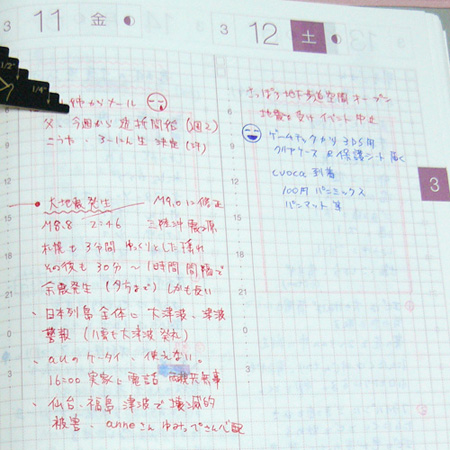 3 11 金
姉からメール
父、今週から透析開始 (週2)
3 12 土
さっぽろ地下歩道空間オープン
地震を受けイベント中止
ゲームテックから3DS用
クリアケースと保護シート届く
cuoca 到着
100円パンミックス
パンマット 等
3
・大地震発生 M9.0に修正
M8.8 2:46 三陸沖震源
札幌も3分間ゆっくりとした揺れ
その後も30分〜1時間間隔で
余震発生 (夕方まで) しかも長い
・日本列島全体に大津波、津波
警報 (八雲も大津波発札)
・auのケータイ、使えない。
16:00 実家に電話 両親共無事
・仙台、福島 津波で壊滅的
被害、anneさん ゆみっぺさん心配